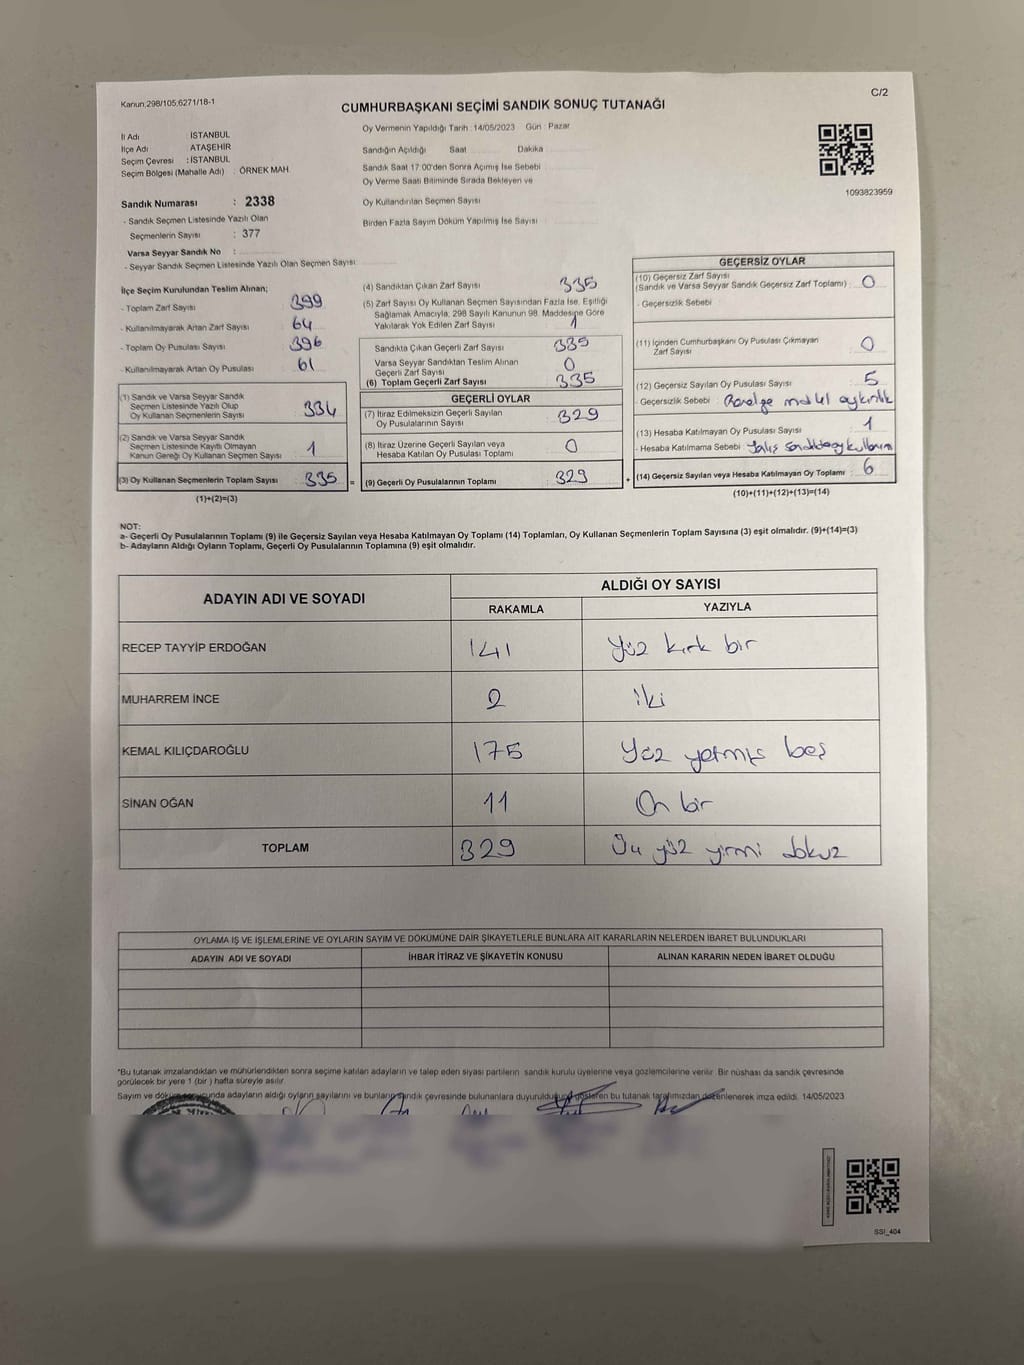 Kanun:298/105;6271/18-1
C/2
CUMHURBAŞKANI SEÇİMİ SANDIK SONUÇ TUTANAĞI
İl Adı : İSTANBUL
İlçe Adı : ATAŞEHİR
Seçim Çevresi : İSTANBUL
Seçim Bölgesi (Mahalle Adı) : ÖRNEK MAH.
Oy Vermenin Yapıldığı Tarih : 14/05/2023 Gün : Pazar
Sandığın Açıldığı Saat Dakika
Sandık Saat 17:00'den Sonra Açılmış İse Sebebi
Oy Verme Saati Bitiminde Sırada Bekleyen ve
Oy Kullandırılan Seçmen Sayısı
Birden Fazla Sayım Döküm Yapılmış İse Sayısı
1093823959
Sandık Numarası : 2338
- Sandık Seçmen Listesinde Yazılı Olan
Seçmenlerin Sayısı : 377
Varsa Seyyar Sandık No :
- Seyyar Sandık Seçmen Listesinde Yazılı Olan Seçmen Sayısı:
İlçe Seçim Kurulundan Teslim Alınan;
- Toplam Zarf Sayısı 399
- Kullanılmayarak Artan Zarf Sayısı 64
- Toplam Oy Pusulası Sayısı 396
- Kullanılmayarak Artan Oy Pusulası 61
(1) Sandık ve Varsa Seyyar Sandık
Seçmen Listesinde Yazılı Olup
Oy Kullanan Seçmenlerin Sayısı 334
(2) Sandık ve Varsa Seyyar Sandık
Seçmen Listesinde Kayıtlı Olmayan
Kanun Gereği Oy Kullanan Seçmen Sayısı 1
(3) Oy Kullanan Seçmenlerin Toplam Sayısı 335 =
(1)+(2)=(3)
(4) Sandıktan Çıkan Zarf Sayısı 335
(5) Zarf Sayısı Oy Kullanan Seçmen Sayısından Fazla İse, Eşitliği
Sağlamak Amacıyla, 298 Sayılı Kanunun 98. Maddesine Göre
Yakılarak Yok Edilen Zarf Sayısı 1
Sandıkta Çıkan Geçerli Zarf Sayısı 335
Varsa Seyyar Sandıktan Teslim Alınan
Geçerli Zarf Sayısı 0
(6) Toplam Geçerli Zarf Sayısı 335
GEÇERLİ OYLAR
(7) İtiraz Edilmeksizin Geçerli Sayılan
Oy Pusulalarının Sayısı 329
(8) İtiraz Üzerine Geçerli Sayılan veya
Hesaba Katılan Oy Pusulası Toplamı 0
(9) Geçerli Oy Pusulalarının Toplamı 329 +
GEÇERSİZ OYLAR
(10) Geçersiz Zarf Sayısı
(Sandık ve Varsa Seyyar Sandık Geçersiz Zarf Toplamı) : 0
- Geçersizlik Sebebi :
(11) İçinden Cumhurbaşkanı Oy Pusulası Çıkmayan
Zarf Sayısı : 0
(12) Geçersiz Sayılan Oy Pusulası Sayısı : 5
- Geçersizlik Sebebi : aykırılık
(13) Hesaba Katılmayan Oy Pusulası Sayısı : 1
- Hesaba Katılmama Sebebi :
(14) Geçersiz Sayılan veya Hesaba Katılmayan Oy Toplamı : 6
(10)+(11)+(12)+(13)=(14)
NOT:
a- Geçerli Oy Pusulalarının Toplamı (9) ile Geçersiz Sayılan veya Hesaba Katılmayan Oy Toplamı (14) Toplamları, Oy Kullanan Seçmenlerin Toplam Sayısına (3) eşit olmalıdır. (9)+(14)=(3)
b- Adayların Aldığı Oyların Toplamı, Geçerli Oy Pusulalarının Toplamına (9) eşit olmalıdır.
ADAYIN ADI VE SOYADI
ALDIĞI OY SAYISI
RAKAMLA YAZIYLA
RECEP TAYYİP ERDOĞAN 141 Yüz kırk bir
MUHARREM İNCE 2 iki
KEMAL KILIÇDAROĞLU 175 Yüz yetmiş beş
SİNAN OĞAN 11 On bir
TOPLAM 329 Üç yüz yirmi dokuz
OYLAMA İŞ VE İŞLEMLERİNE VE OYLARIN SAYIM VE DÖKÜMÜNE DAİR ŞİKAYETLERLE BUNLARA AİT KARARLARIN NELERDEN İBARET BULUNDUKLARI
ADAYIN ADI VE SOYADI İHBAR İTİRAZ VE ŞİKAYETİN KONUSU ALINAN KARARIN NEDEN İBARET OLDUĞU
*Bu tutanak imzalandıktan ve mühürlendikten sonra seçime katılan adayların ve talep eden siyasi partilerin sandık kurulu üyelerine veya gözlemcilerine verilir. Bir nüshası da sandık çevresinde
görülecek bir yere 1 (bir ) hafta süreyle asılır.
Sayım ve döküm sonucunda adayların aldığı oyların sayılarını ve bunların sandık çevresinde bulunanlara duyurulduğunu gösteren bu tutanak tarafımızdan düzenlenerek imza edildi. 14/05/2023
SSI_404